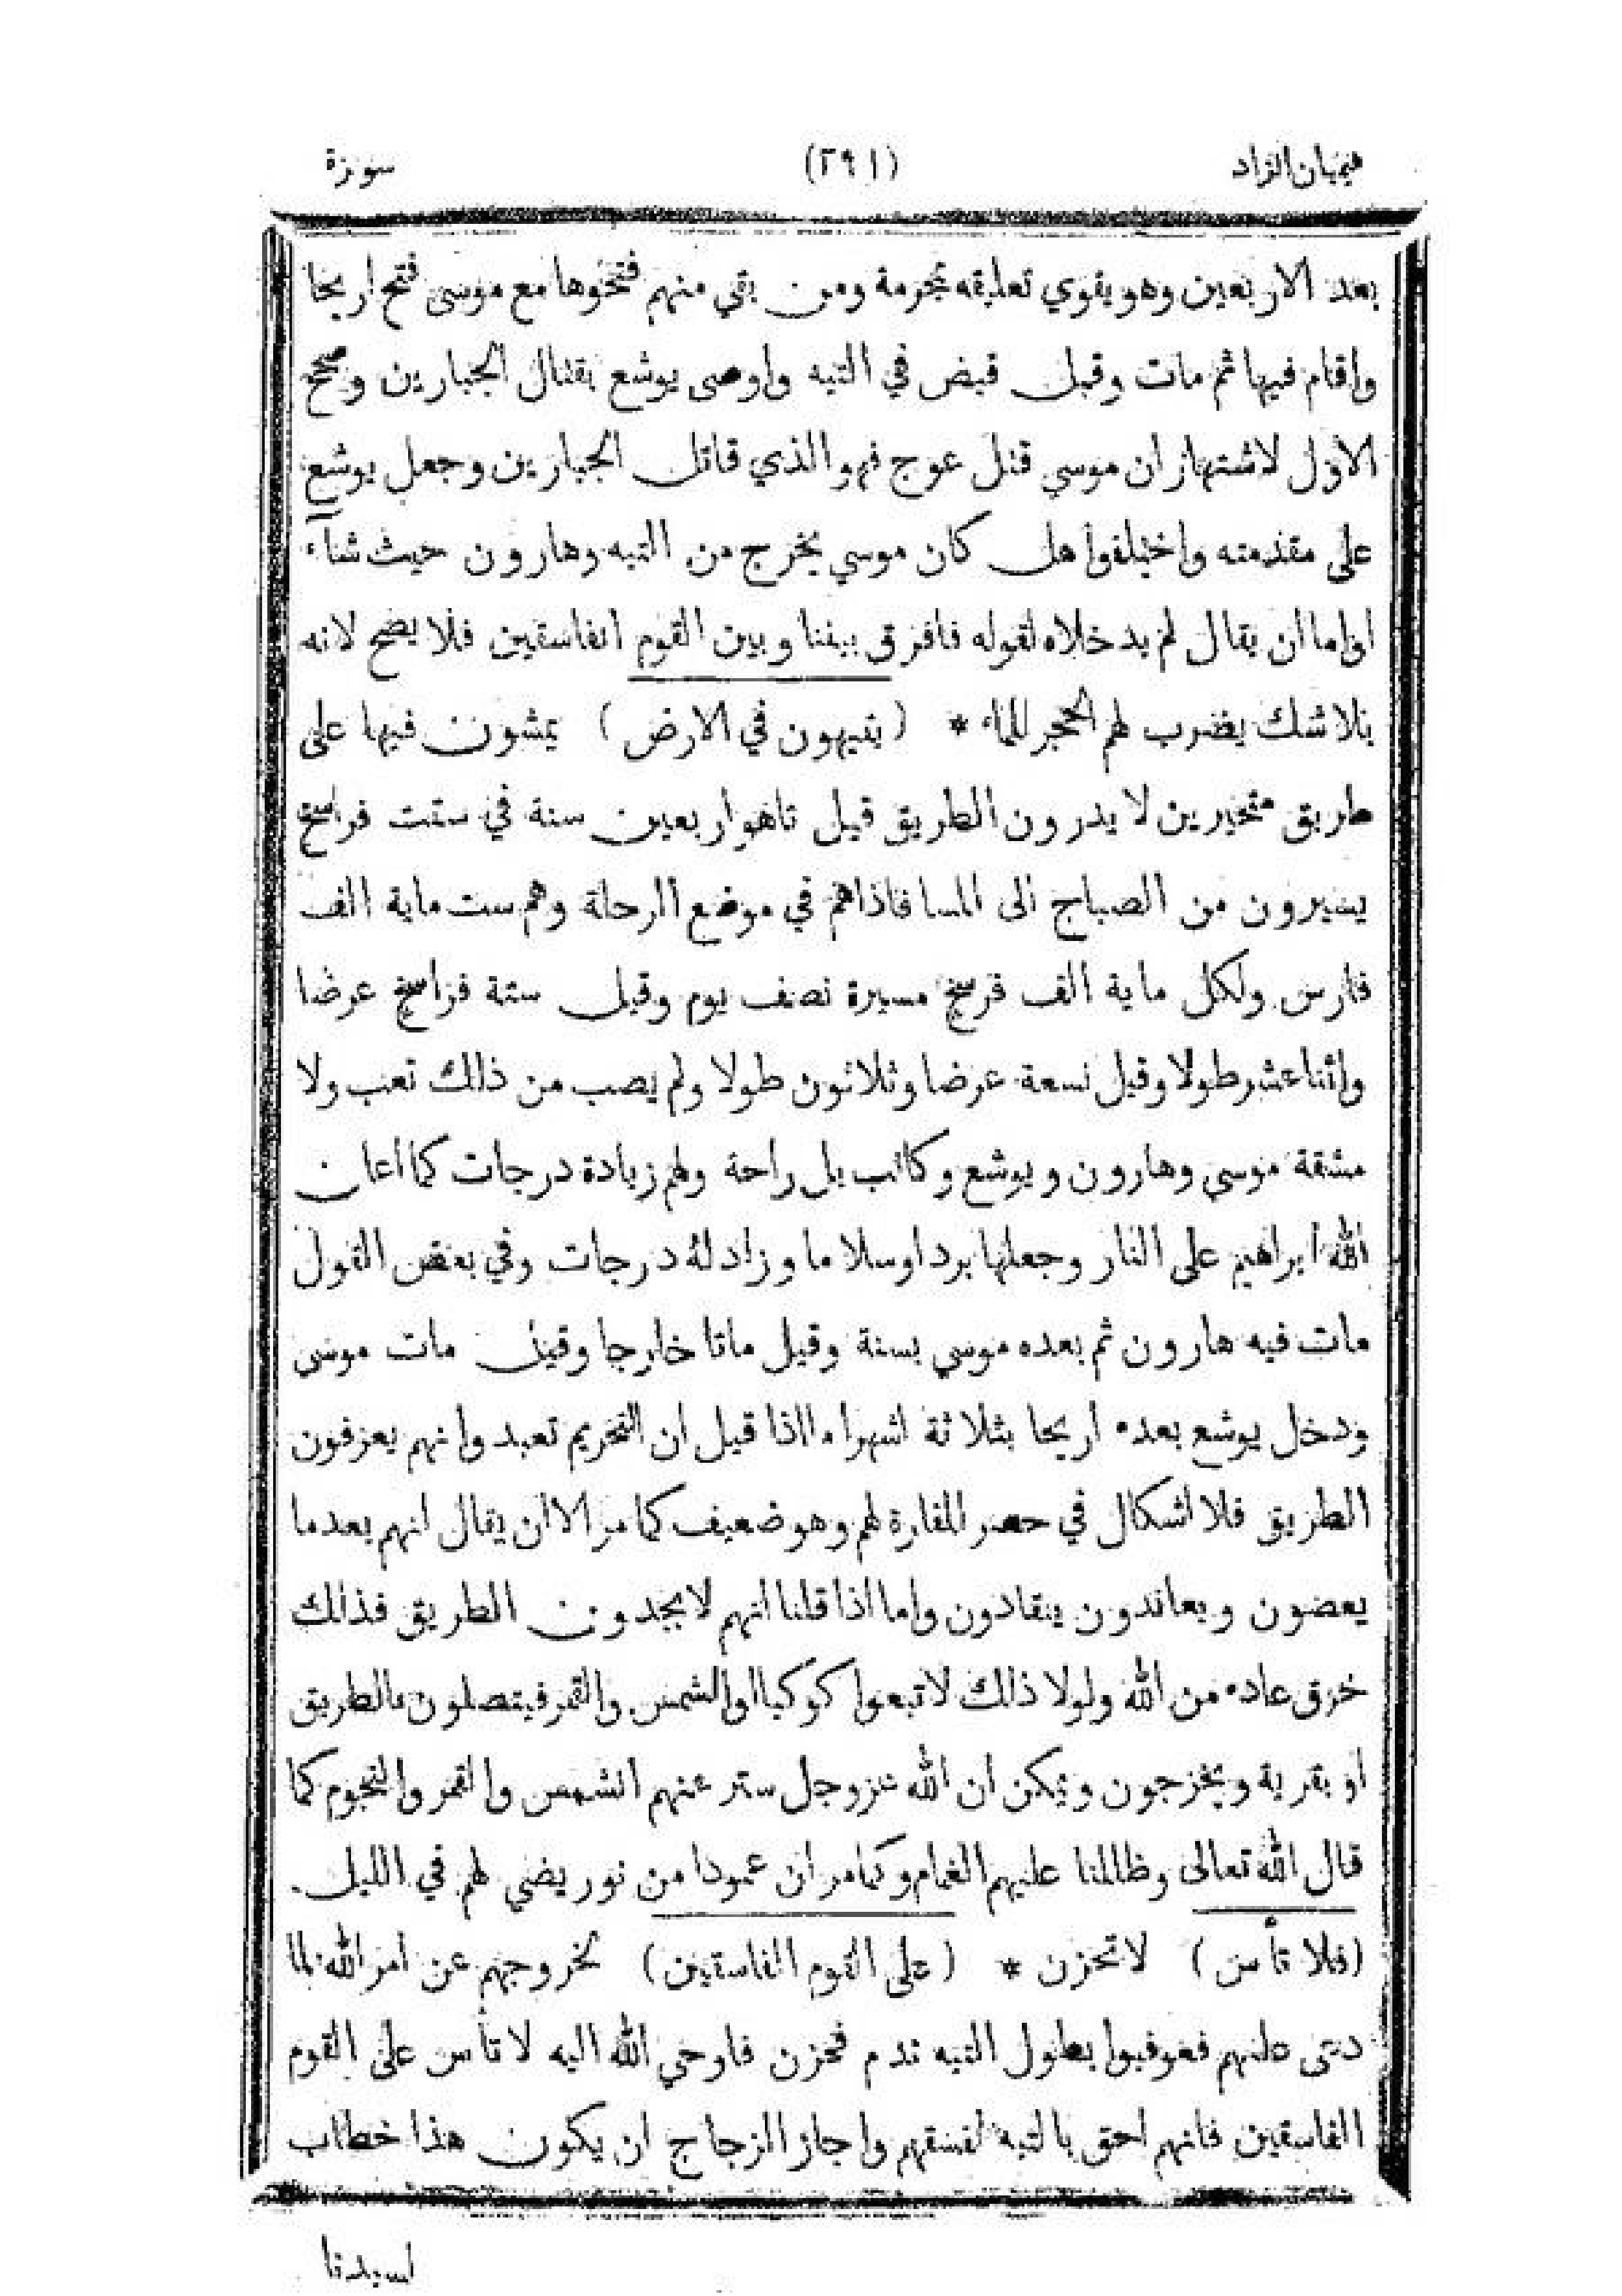 هيميان الزاد (٢٩١) سورة
بعد الاربعين وهو يقوي تعليقه بمحرمة ومن بقي منهم فتحوها مع موسى فتح اريحا
واقام فيها ثم مات وقيل قبض في التيه واوصى يوشع بقتال الجبارين وصحح
الاول لاشتهار ان موسي قتل عوج فهو الذي قاتل الجبارين وجعل يوشع
على مقدمته واختلفوا هل كان موسي يخرج من التيه وهارون حيث شاآء
او اما ان يقال لم يدخلاه لقوله فافرق بيننا وبين القوم الفاسقين فلا يصح لانه
بلا شك يضرب لهم الحجر للماء * (يتيهون في الارض) يمشون فيها على
طريق متحيرين لا يدرون الطريق قيل تاهوا اربعين سنة في ستت فراسخ
يسيرون من الصباح الى المسا فاذاهم في موضع الرحلة وهم ست ماية الف
فارس ولكل ماية الف فرسخ مسيرة نصف يوم وقيل ستة فراسخ عرضا
واثنا عشر طولا وقيل تسعة عرضا وثلاثون طولا ولم يصب من ذلك تعب ولا
مشقة موسي وهارون ويوشع وكالب بل راحة ولهم زيادة درجات كما اعان
الله ابراهيم على النار وجعلها بردا وسلاما وزاد له درجات وفي بعض القول
مات فيه هارون ثم بعده موسي بسنة وقيل ماتا خارجا وقيل مات موسى
ودخل يوشع بعده اريحا بثلاثة اشهر اما اذا قيل ان التحريم تعبد وانهم يعرفون
الطريق فلا اشكال في حصر المفازة لهم وهو ضعيف كما مر الا ان يقال انهم بعدما
يعصون ويعاندون ينقادون واما اذا قلنا انهم لا يجدون الطريق فذلك
خرق عاده من الله ولولا ذلك لا تبعوا كوكبا او الشمس والقمر فيتصلون بالطريق
او بقرية ويخرجون ويمكن ان الله عزوجل ستر عنهم الشمس والقمر والنجوم كما
قال الله تعالى وظللنا عليهم الغمام وكما مر ان عمودا من نور يضي لهم في الليل
(فلا تأس) لا تحزن * (على القوم الفاسقين) لخروجهم عن امر الله لما
دعى عليهم فعوقبوا بطول التيه ندم فحزن فاوحي الله اليه لا تأس على القوم
الفاسقين فانهم احق بالتيه لفسقهم واجاز الزجاج ان يكون هذا خطاب
لسيدنا